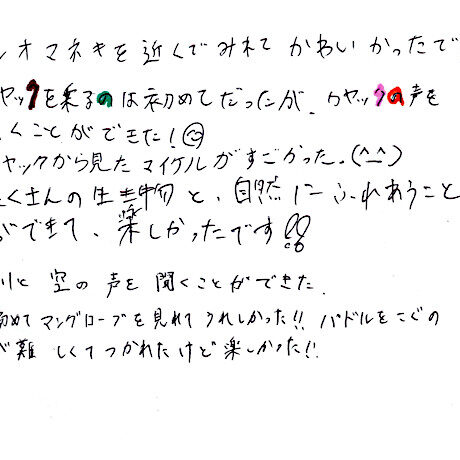 シオマネキを近くでみれて かわいかったで
ヤックを乗るのは初めてだったが、カヤックの声を
くことができた!
ヤックから見たマイケルがすごかった。(^_^)
くさんの生き物と、自然にふれあうこと
ができて、楽しかったです!!
空の声を聞くことができた。
初めてマングローブを見れてうれしかった!! パドルをこぐの
が難しくてつかれたけど楽しかった!!